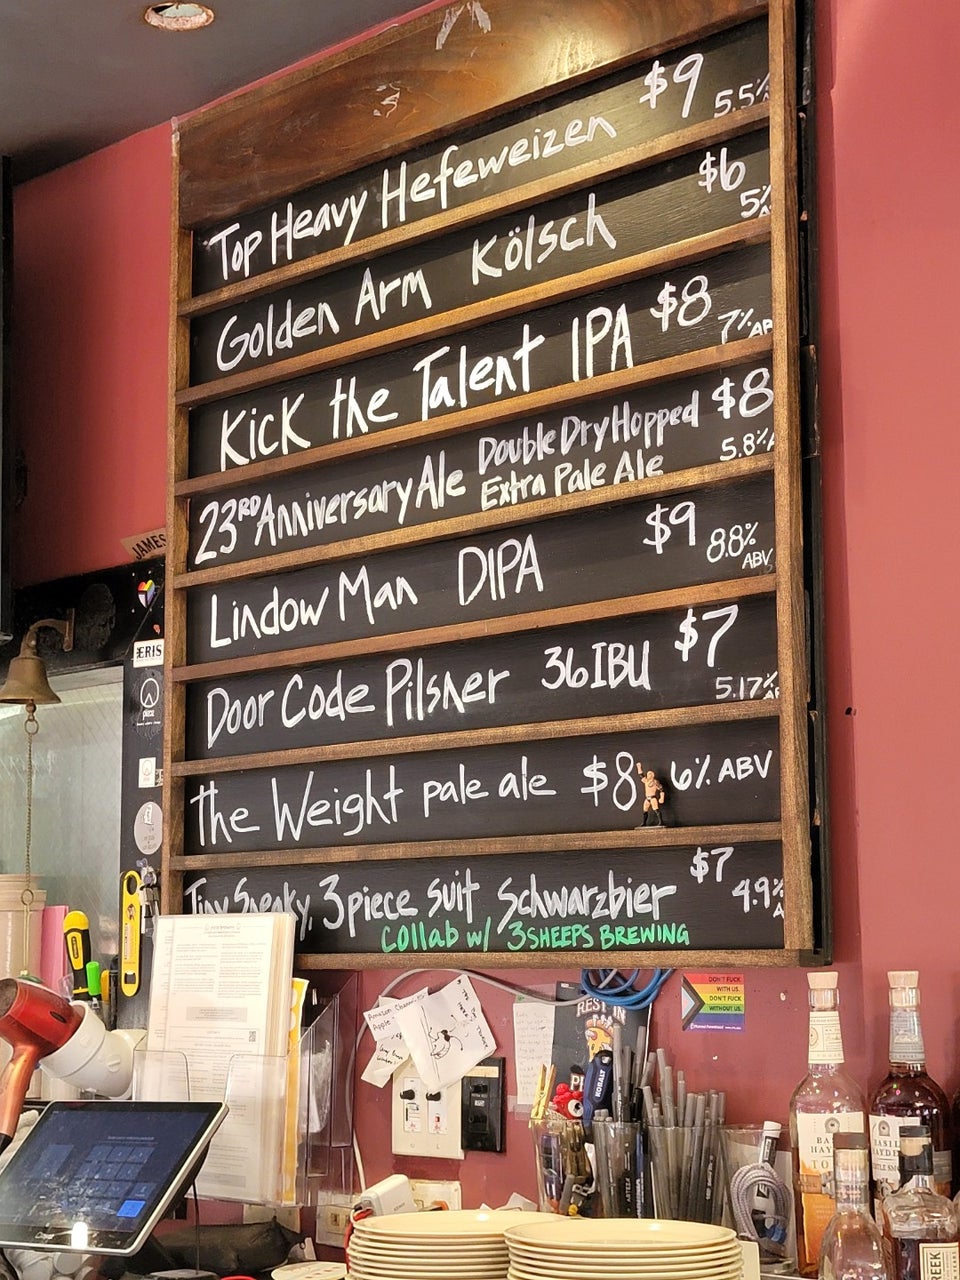 Top Heavy Hefeweizen $9 5.5%
Golden Arm Kölsch $6 5%
Kick the Talent IPA $8 7% AB
23RD Anniversary Ale Double Dry Hopped $8
Extra Pale Ale 5.8% A
Lindow Man DIPA $9 8.8%
ABV
Door Code Pilsner 36 IBU $7 5.17%
the Weight pale ale $8 6% ABV
Tiny Sneaky, 3 piece suit Schwarzbier $7 4.9%
Collab w/ 3SHEEPS BREWING
JAMES
ERIS
piece
DON'T FUCK
WITH US.
DON'T FUCK
WITHOUT US.
REST IN
Amazon
Apple
KOBALT
BASIL
HAYDEN